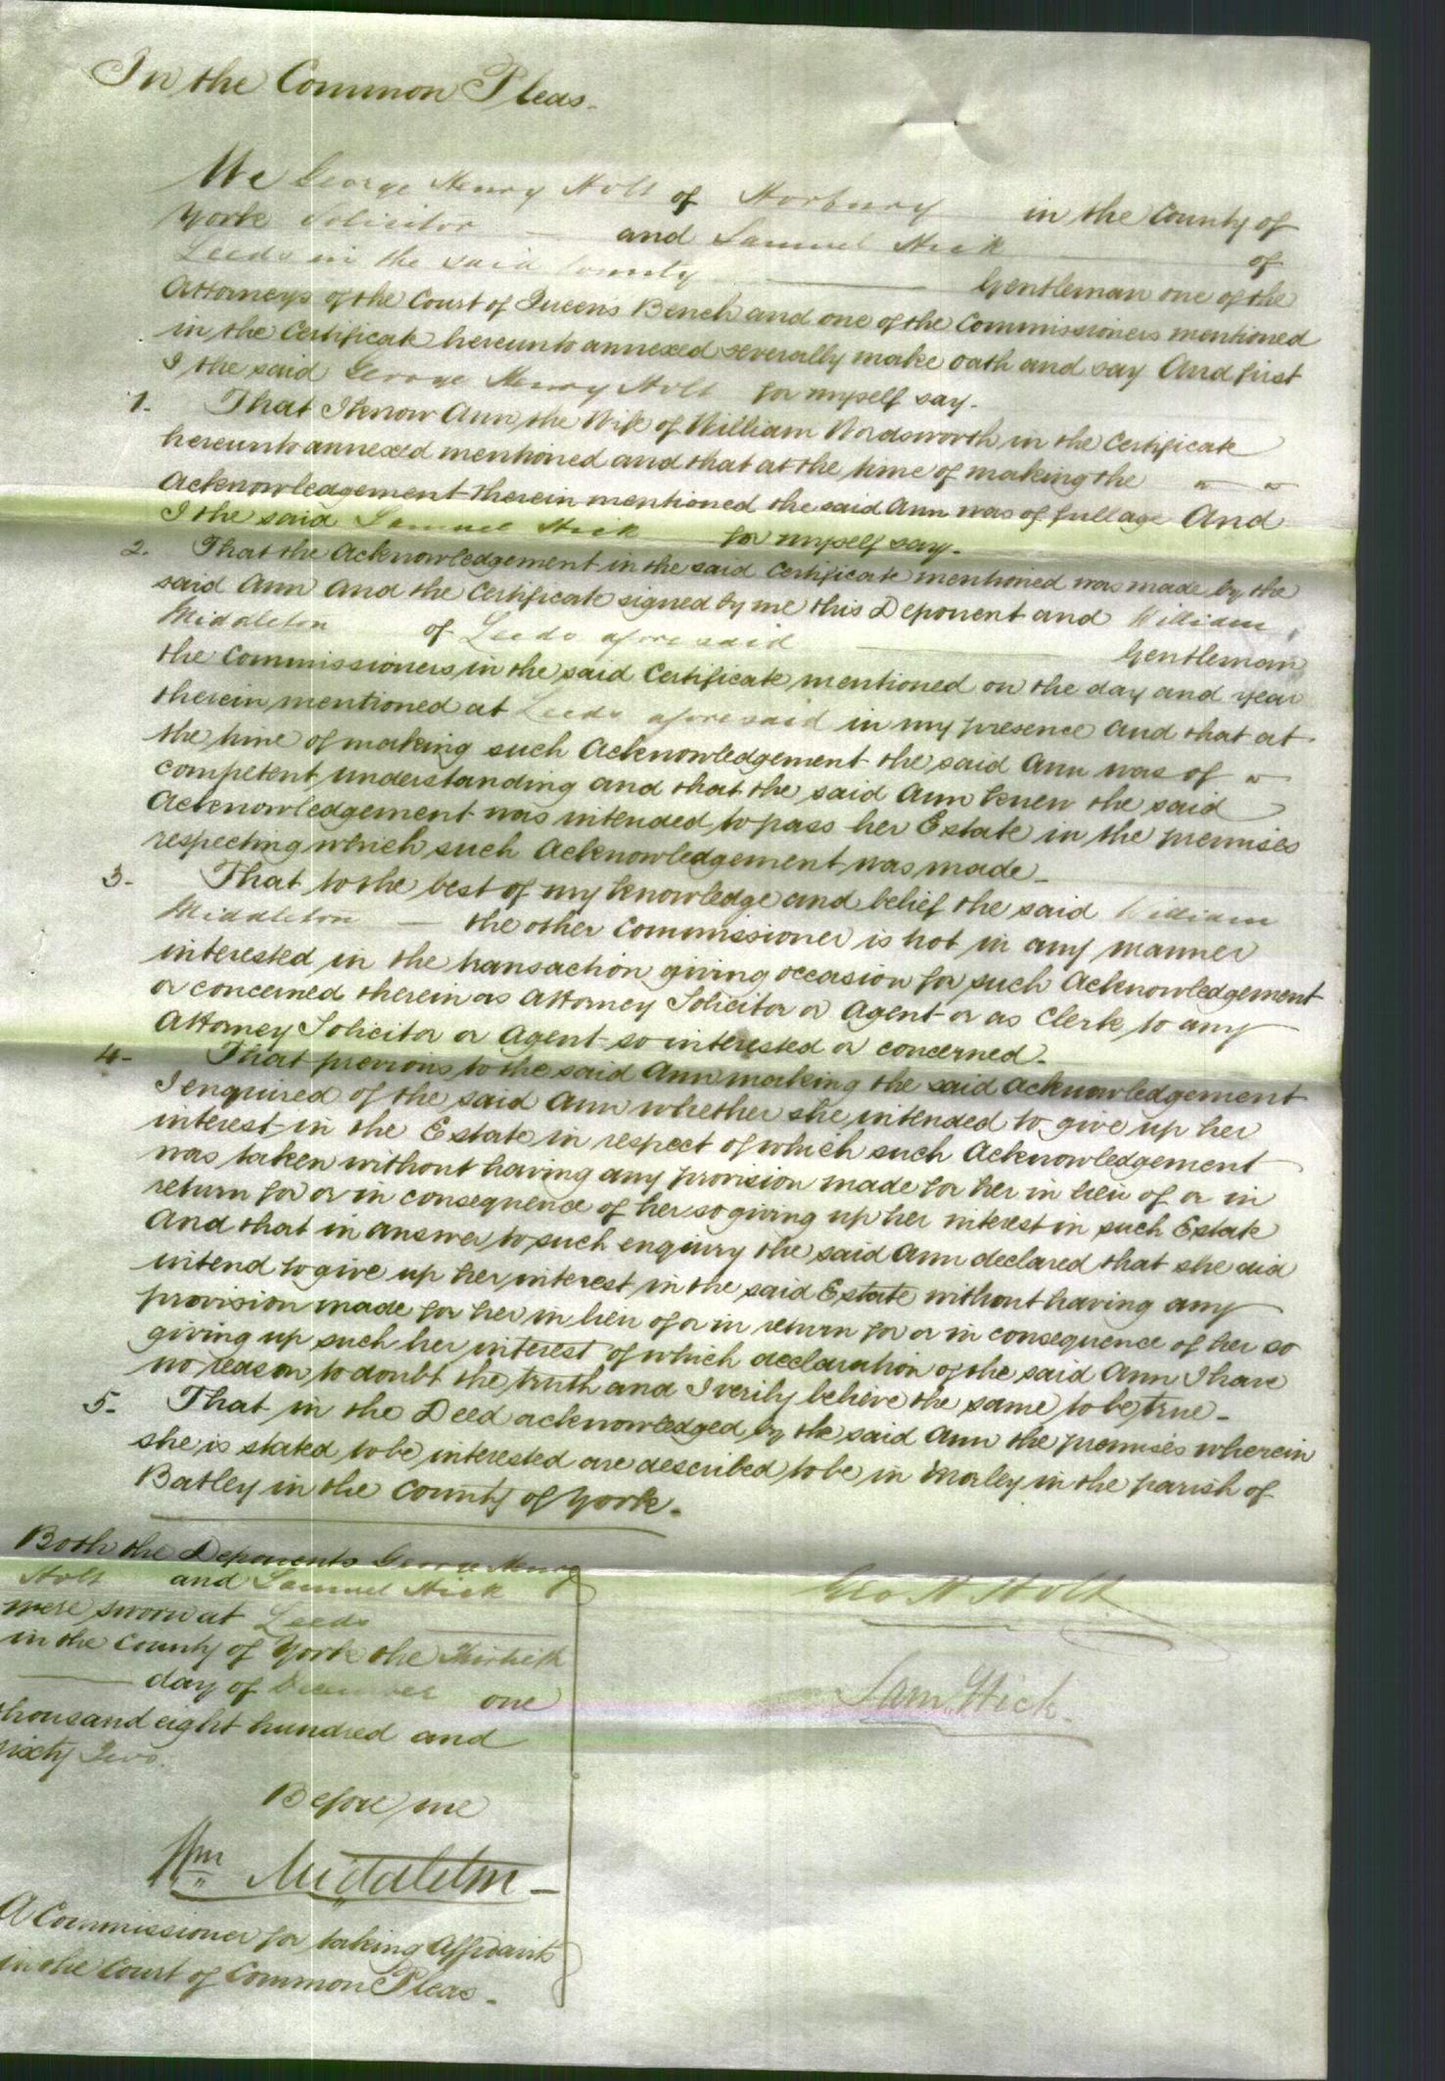 In the Common Pleas.
We George Henry Holt of Horbury in the County of
York Solicitor — and Samuel Hick of
Leeds in the said County — Gentleman one of the
Attorneys of the Court of Queens Bench and one of the Commissioners mentioned
in the Certificate hereunto annexed severally make oath and say And first
I the said George Henry Holt for myself say.
1. That I know Ann, the Wife of William Wordsworth in the Certificate
hereunto annexed mentioned and that at the time of making the
Acknowledgement therein mentioned the said Ann was of full age And
I the said Samuel Hick for myself say.
2. That the Acknowledgement in the said Certificate mentioned was made by the
said Ann And the Certificate signed by me this Deponent and William
Middleton of Leeds aforesaid — Gentleman
the Commissioners in the said Certificate mentioned on the day and year
therein mentioned at Leeds aforesaid in my presence And that at
the time of making such Acknowledgement the said Ann was of
competent understanding and that the said Ann knew the said
Acknowledgement was intended to pass her Estate in the premises
respecting which such Acknowledgement was made.
3. That to the best of my knowledge and belief the said William
Middleton — the other Commissioner is not in any manner
interested in the transaction giving occasion for such Acknowledgement
or concerned therein as Attorney Solicitor or Agent or as Clerk to any
Attorney Solicitor or Agent so interested or concerned.
4. That previous to the said Ann making the said Acknowledgement
I enquired of the said Ann whether she intended to give up her
interest in the Estate in respect of which such Acknowledgement
was taken without having any provision made for her in lieu of or in
return for or in consequence of her so giving up her interest in such Estate
And that in answer to such enquiry the said Ann declared that she did
intend to give up her interest in the said Estate without having any
provision made for her in lieu of or in return for or in consequence of her so
giving up such her interest of which declaration of the said Ann I have
no reason to doubt the truth and I verily believe the same to be true.
5. That in the Deed acknowledged by the said Ann the premises wherein
she is stated to be interested are described to be in Morley in the parish of
Batley in the County of York.
Both the Deponents George Henry
Holt and Samuel Hick
were sworn at Leeds
in the County of York the Thirtieth
— day of December one
thousand eight hundred and
sixty Two.
Before me
Wm Middleton
A Commissioner for taking Affidavits
in the Court of Common Pleas.
Geo H Holt
Sam Hick.